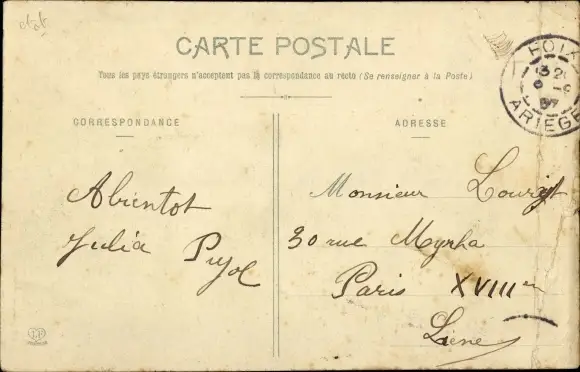 CARTE POSTALE
Tous les pays étrangers n'acceptent pas la correspondance au recto (Se renseigner à la Poste)
CORRESPONDANCE
ADRESSE
Abientot
Julia Pujol
Monsieur
30 rue Myrha
Paris XVIIIe
FOIX
ARIEGE